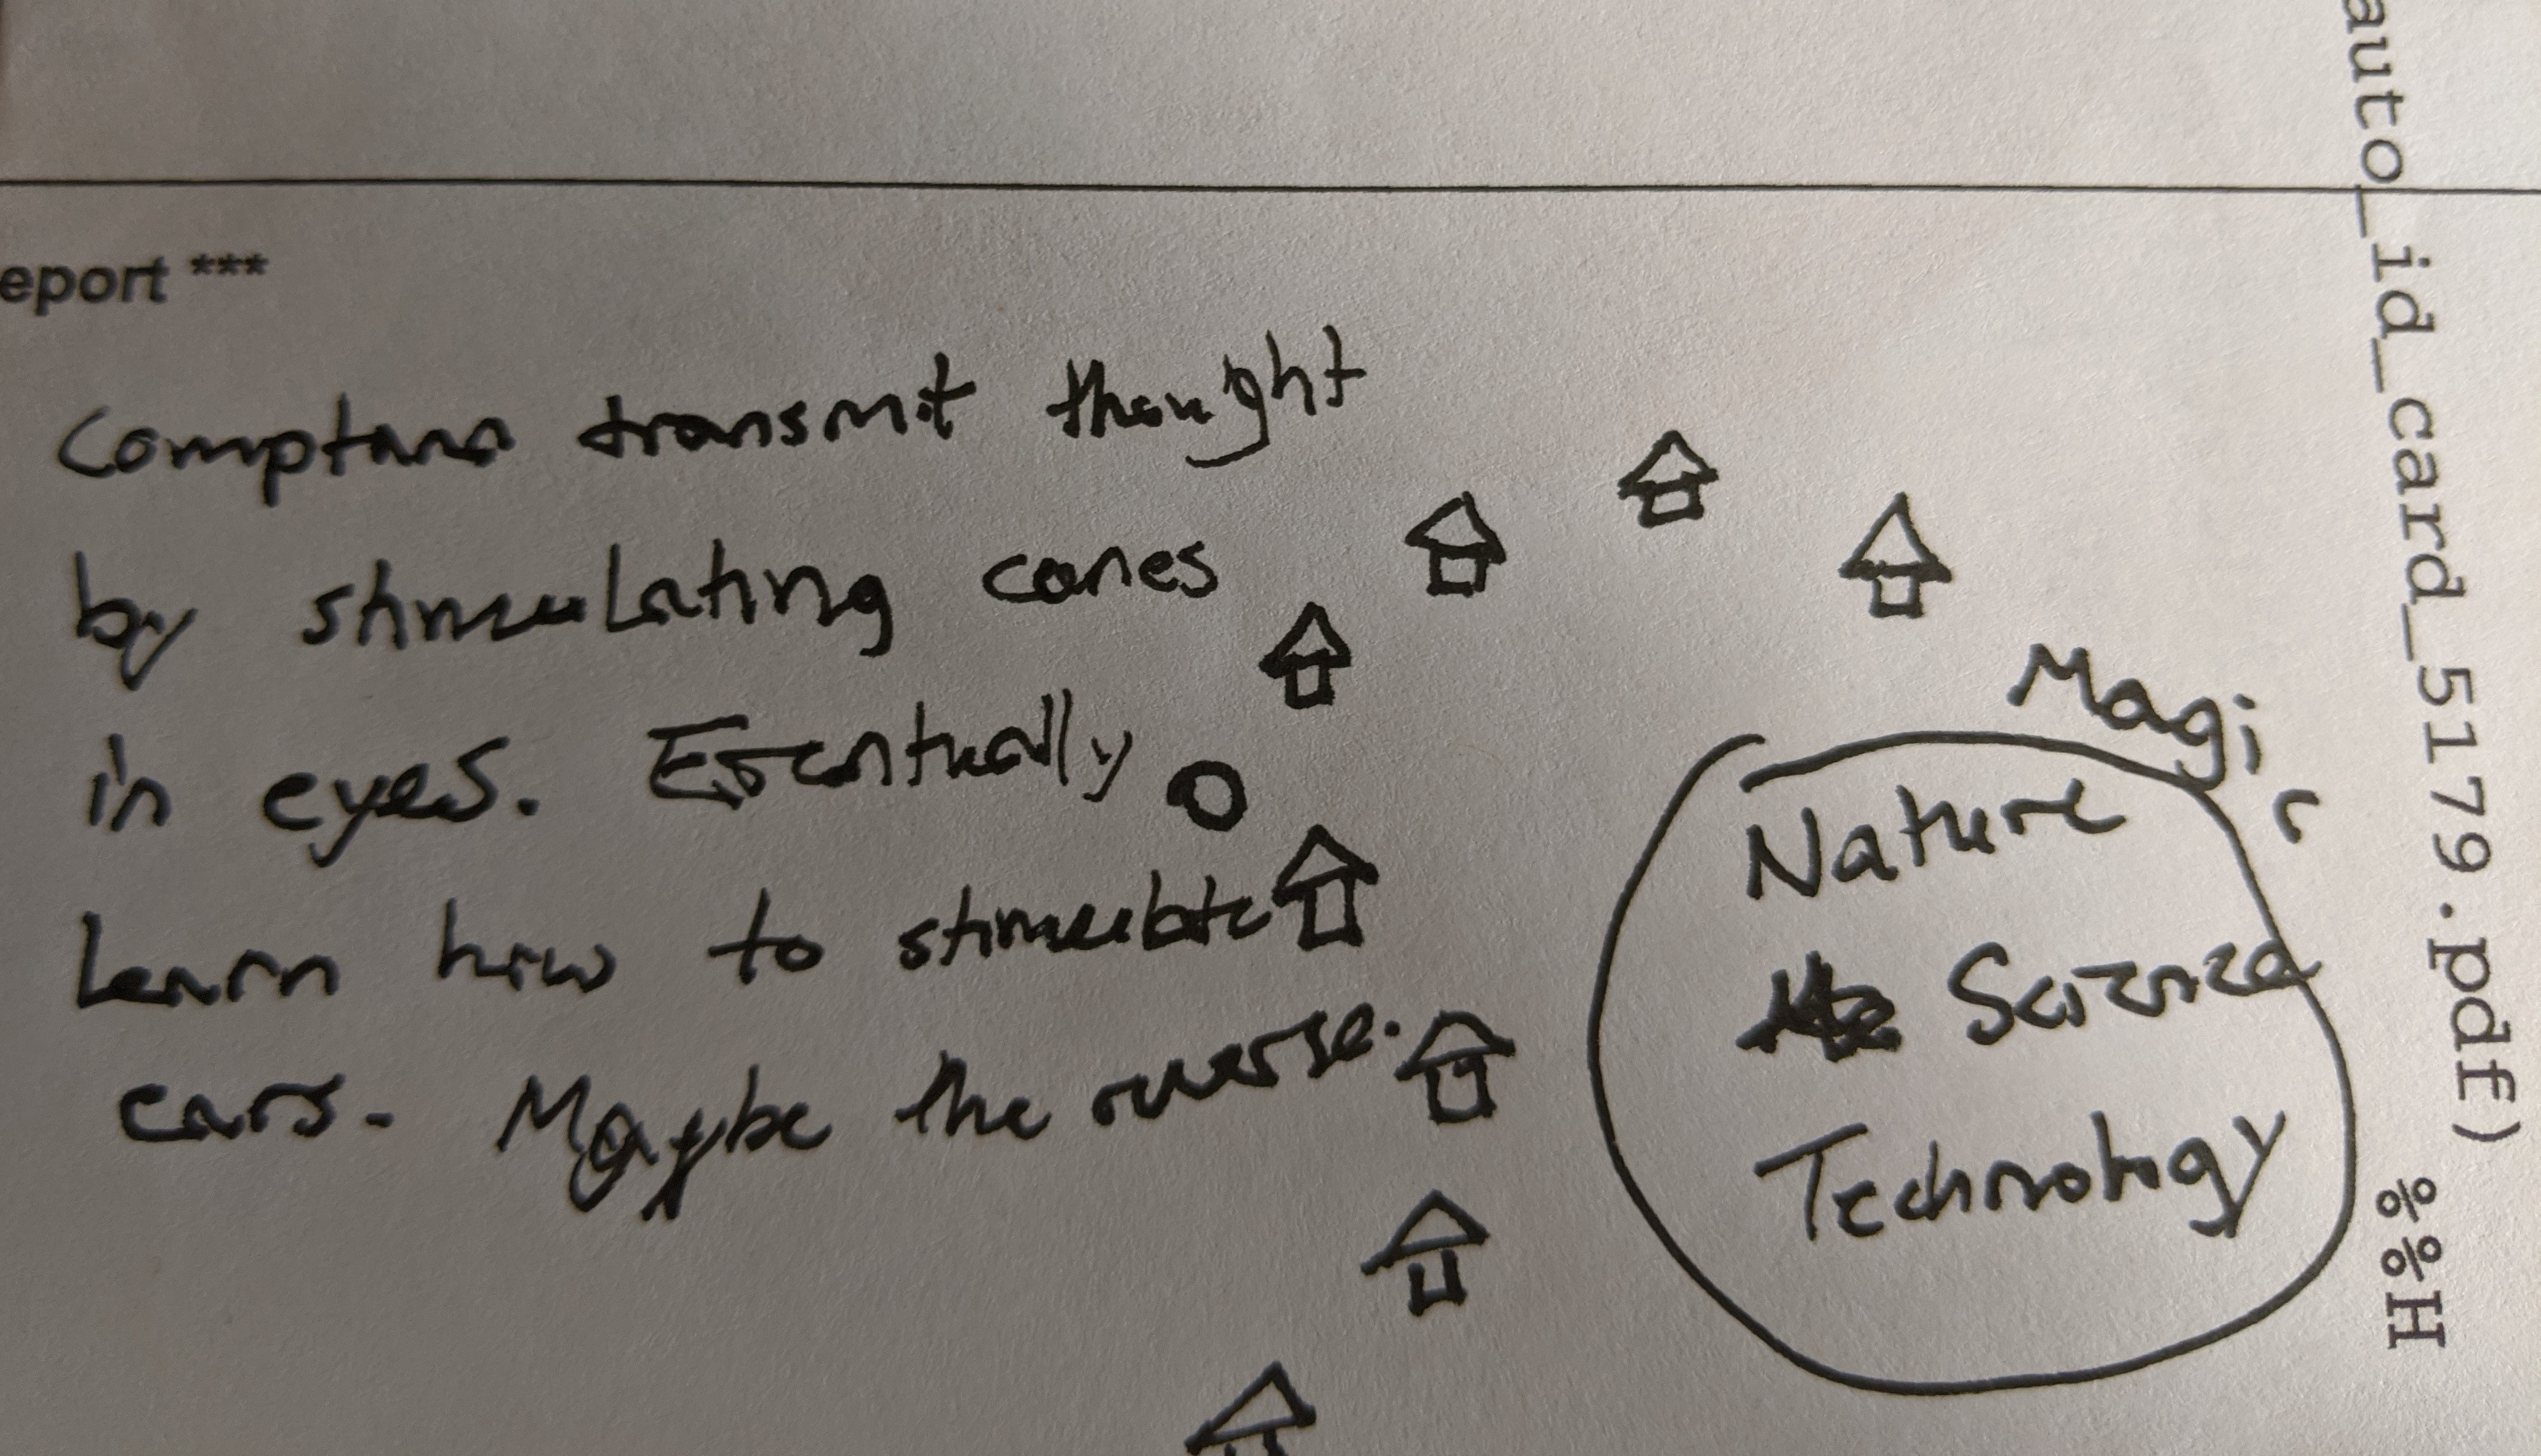 eport ***
transmit thought
by stimulating cones
in eyes. Esentually
Learn how to stimulate
ears. Maybe the reverse.
Magic
Nature
Science
Technology
auto_id_card_5179.pdf) %%H